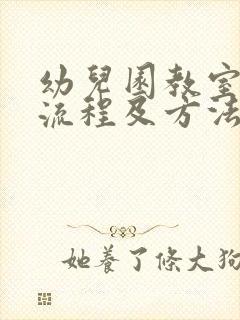 幼兒園教室
流程及方法
她養了條大狗